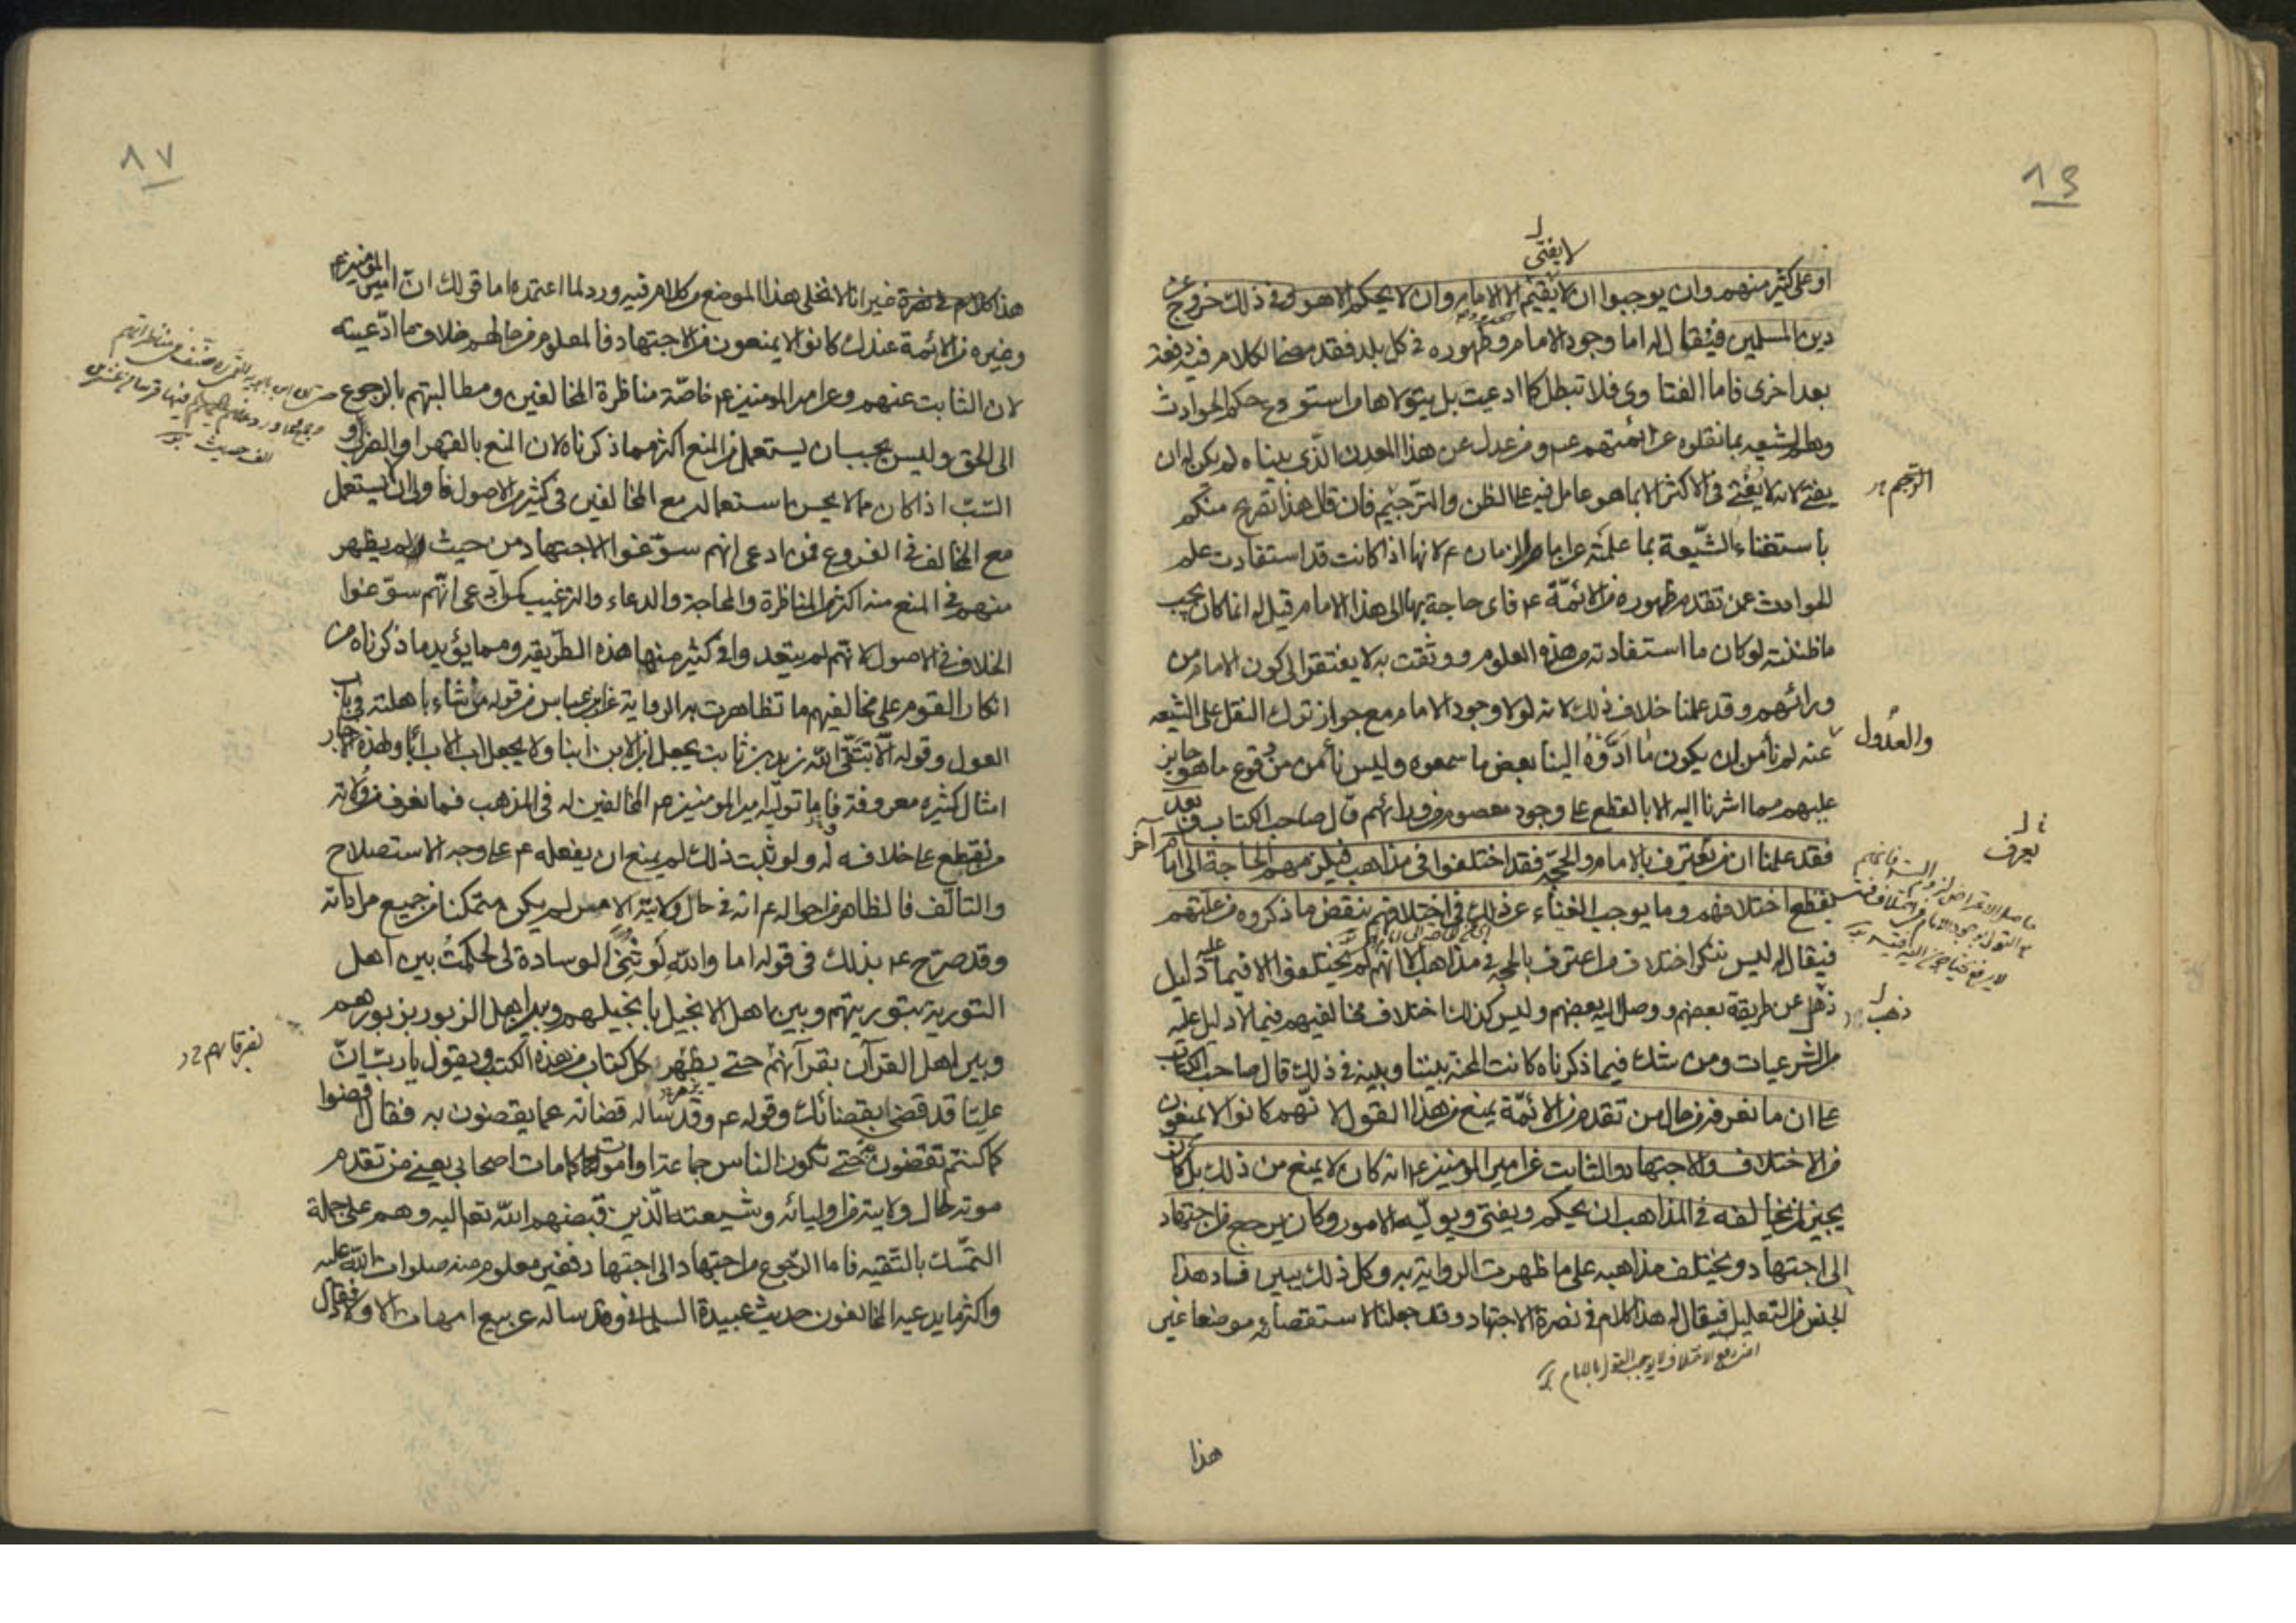 لا يفتى
او على كثير منهم وان يوجبوا ان لا يقيم الا الامام وان لا يحكم الا هو وفى ذلك خروج عن
دين المسلمين فيقال له اما وجود الامام وظهوره فى كل بلد فقد مضى الكلام فيه دفعة
بعد اخرى فاما الفتاوى فلا تبطل كما ادعيت بل يتولاها من استودع حكم الحوادث
وهم الشيعه بما نقلوه عن ائمتهم عم ومن عدل عن هذا المعدن الذى بيناه لم يكن له ان
يفتى لانه لا يفتى فى الاكثر الا بما هو عامل فيه على الظن والترجيم فان قال هذا تصريح منكم
باستغناء الشيعة بما علمته عن امام الزمان ع لانها اذا كانت قد استفادت علم
الحوادث عمن تقدم ظهوره من الائمة ع فاى حاجة بها الى هذا الامام قيل له انما كان يجب
ما ظننته لو كان ما استفادته من هذه العلوم ووثقت به لا يفتقر الى كون الامام من
ورائهم وقد علمنا خلاف ذلك لانه لولا وجود الامام مع جواز ترك النقل على الشيعه
والعدول
عنه لم نأمن ان يكون ما ادوه الينا بعض ما سمعوه وليس نأمن من وقوع ما هو جايز
عليهم مما اشرنا اليه الا بالقطع على وجود معصوم من ورائهم قال صاحب الكتاب وبعد
فقد علمنا ان من يعترف بالامام والحجة فقد اختلفوا فى مذاهب فيلزمهم الحاجة الى امام آخر
يعرف
يقطع اختلافهم وما يوجب الغناء عن ذلك فى اختلافهم ينقض ما ذكروه من علتهم
فيقال له ليس ننكر اختلاف من اعترف بالحجة فى مذاهب الا انهم لم يختلفوا الا فيما عليه دليل
ذهل عن طريقة بعضهم ووصل اليه بعضهم وليس كذلك اختلاف مخالفيهم فيما لا دليل عليه
ذهب
من الشرعيات ومن شك فيما ذكرناه كانت المحنة بيننا وبينه فى ذلك قال صاحب الكتاب
على ان ما نعرفه من حال من تقدم من الائمة يمنع من هذا القول لانهم كانوا لا يمنعون
من الاختلاف والاجتهاد والثابت عن امير المومنين ع انه كان لا يمنع من ذلك بل كان
يجيز لمن يخالفه فى المذاهب ان يحكم ويفتى ويوليه الامور وكان يرجع من اجتهاد
الى اجتهاد ويختلف مذاهبه على ما ظهرت الرواية به وكل ذلك يبين فساد هذا
الجنس من التعليل فيقال له هذا كلام فى نصرة الاجتهاد وقد جعلنا لاستقصائه موضعا غير
هذا
٨٧
هذا كلام فى نصرة غير انا لا نخلى هذا الموضع من كلام فيه ورد لما اعتمده اما قولك ان امير المؤمنين ع
وغيره من الائمة عندك كانوا لا يمنعون من الاجتهاد فالمعلوم من حالهم خلاف ما ادعيته
لان الثابت عنهم وعن امير المومنين ع خاصة مناظرة المخالفين ومطالبتهم بالرجوع
الى الحق وليس يجب ان يستعمل من المنع اكثر مما ذكرناه لان المنع بالقهر او الضرب او
السب اذا كان مما لا يحسن استعماله مع المخالفين فى كثير من الاصول فاولى ان لا يستعمل
مع المخالف فى الفروع فمن ادعى انهم سوغوا الاجتهاد من حيث لم يظهر
منهم فى المنع منه اكثر من المناظرة والمحاجة والدعاء والترغيب كمن ادعى انهم سوغوا
الخلاف فى الاصول لانهم لم يتعدوا فى كثير منها هذه الطريقه ومما يؤيد ما ذكرناه من
انكار القوم على مخالفيهم ما تظاهرت به الرواية عن ابن عباس من قوله من شاء باهلته فى باب
العول وقوله الا يتقى الله زيد بن ثابت يجعل ابن الابن ابنا ولا يجعل اب الاب ابا ولهذه الاخبار
امثال كثيره معروفة فاما تولية امير المومنين ع المخالفين له فى المذهب فما نعرف من ولاته
من نقطع على خلافه له ولو ثبت ذلك لم يمنع ان يفعله ع على وجه الاستصلاح
والتالف فالظاهر من احواله ع انه فى حال ولاية الامر لم يكن متمكنا من جميع مراداته
وقد صرح ع بذلك فى قوله اما والله لو ثنى الوسادة لى لحكمت بين اهل
التورية بتوريتهم وبين اهل الانجيل بانجيلهم وبين اهل الزبور بزبورهم
وبين اهل القرآن بقرآنهم حتى يظهر كل كتاب من هذه الكتب ويقول يا رب ان
عليا قد قضى بقضائك وقوله ع وقد ساله قضاته عما يقضون به فقال اقضوا
كما كنتم تقضون حتى تكون الناس جماعة او اموت كما مات اصحابى يعنى من تقدم
موته لحال ولايته من اوليائه وشيعته الذين قبضهم الله تعالى اليه وهم على جملة
التمسك بالتقيه فاما الرجوع من اجتهاد الى اجتهاد فغير معلوم منه صلوات الله عليه
واكثر ما يدعيه المخالفون حديث عبيدة السلمانى وقد ساله عن بيع امهات الاولاد فقال